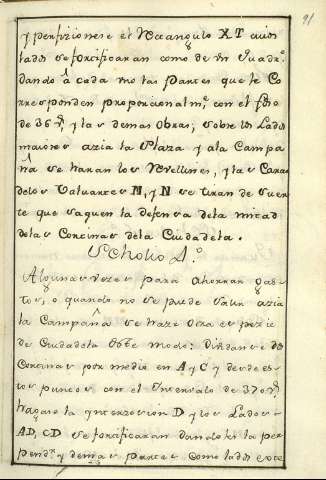 91
y perfizionese el Rectangulo XT cuios
lados se fortificaran como de un Quadr.º
dando â cada uno las partes que le Co
rresponden proporcionalm.te con el foso
de 36 y las demas obras; sobre los Lados
maiores azia la Plaza y ala Campa
ña se haran los Revellines, y las Caras
delos Valuartes M, y N se tiran de suer
te que saquen la defensa dela mitad
delas Cortinas dela Ciudadela.
Scholio 4.º
Algunas vezes para ahorrar gas
tos, o quando no se puede salir azia
la Campaña se haze otra espezie
de Ciudadela deste modo: Dividanse dos
Cortinas por medio en A y C y desde es
tos puntos con el Intervalo de 370
hagase la Yntersecsion D y los Lados
AD, CD se fortificaran dandoles la per
pend.r y demas partes como lados exte